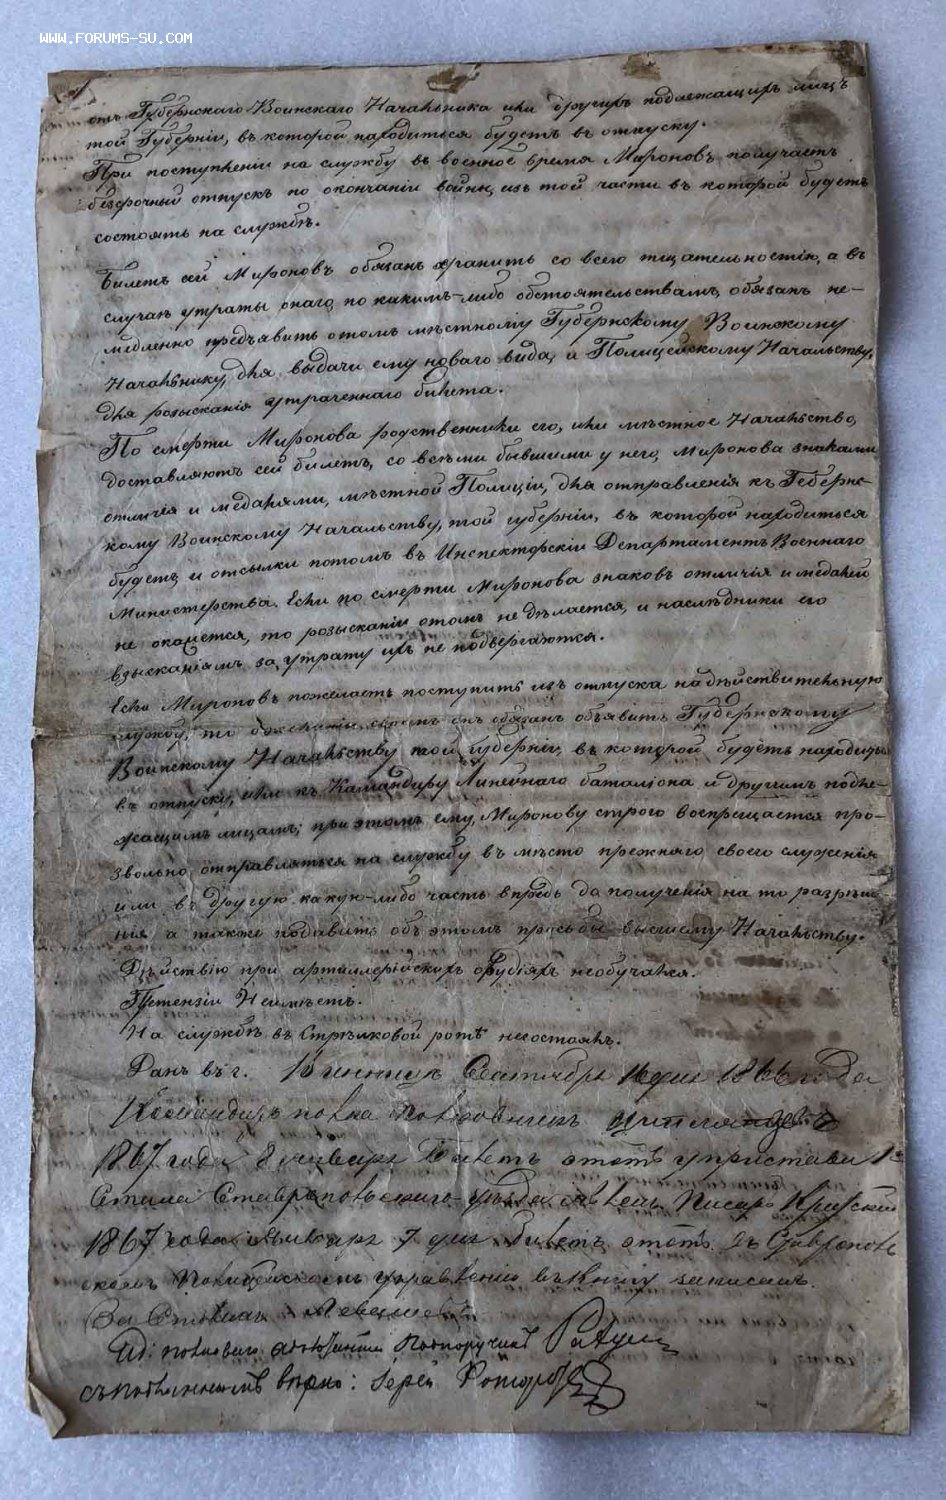 WWW.FORUMS-SU.COM
отъ Губернскаго Воинскаго Начальника или другихъ подлежащихъ лицъ
той Губерніи, въ которой находиться будетъ въ отпуску.
При поступленіи на службу въ военное время Мироновъ получаетъ
безсрочный отпускъ по окончаніи войны, изъ той части въ которой будетъ
состоять на службѣ.
Билетъ сей Мироновъ обязанъ хранить со всею тщательностію, а въ
случаѣ утраты онаго, по какимъ-либо обстоятельствамъ, обязанъ не-
медленно предъявить отомъ мѣстному Губернскому Воинскому
Начальнику, для выдачи ему новаго вида, и Полицейскому Начальству,
для розысканія утраченнаго билета.
По смерти Миронова родственники его, или мѣстное Начальство,
доставляютъ сей билетъ, со всѣми бывшими у него, Миронова знаками
отличія и медалями, мѣстной Полиціи, для отправленія къ Губернс-
кому Воинскому Начальству, той губерніи, въ которой находиться
будетъ, и отсылки потомъ въ Инспекторскій Департаментъ Военнаго
Министерства. Если по смерти Миронова знаковъ отличія и медалей
не окажется, то розысканіи отомъ не дѣлается, и наслѣдники его
взысканіямъ за утрату ихъ не подвергаются.
Если Мироновъ пожелаетъ поступить изъ отпуска на дѣйствительную
службу, то о желаніи своемъ онъ обязанъ объявить Губернскому
Воинскому Начальству той губерніи, въ которой будетъ находиться
въ отпуску, или къ Командиру Линейнаго баталіона и другимъ подле-
жащимъ лицамъ; при этомъ ему, Миронову строго воспрещается про-
звольно отправляться на службу въ мѣсто прежняго своего служенія
или въ другую какую-либо часть впредь да полученія на то разрѣше-
нія а также подавить объ этомъ просьбы высшему Начальству.
Дѣйствію при артиллерійскихъ орудіяхъ необучался.
Петензіи Неимѣетъ.
На службѣ въ Стрѣлковой ротѣ несостоялъ.
Данъ въ г. Сентября 16 дня 1866 года
Командиръ полка Полковникъ
1867 года 8 января Билетъ этотъ у пристава 1го
Стана Ставропольскаго уѣзда явленъ. Писарь
1867 года Января 7 дня Билетъ этотъ въ Ставрополь
скомъ Полицейскомъ Управленіи въ книгу записанъ.
За
полковаго адъютанта Подпоручикъ
съ подлиннымъ вѣрно: Іерей